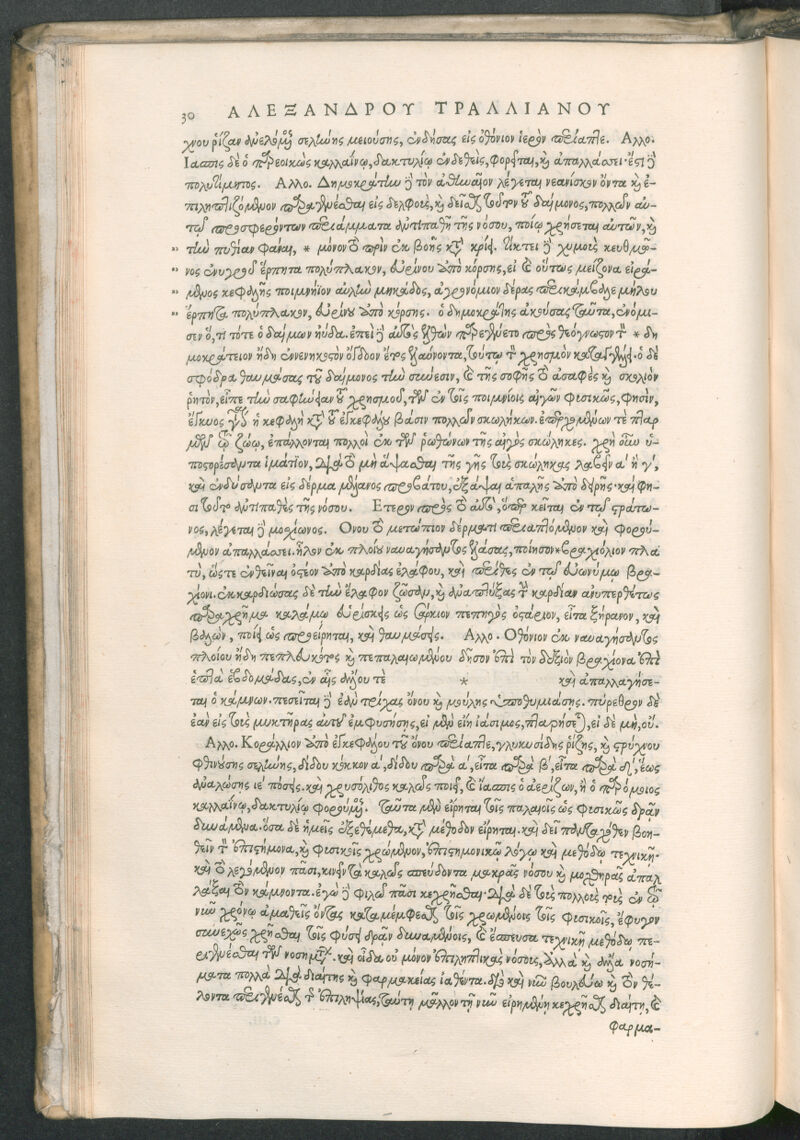 30 ΑΛΕΞΑΝΔΡΟΥ ΤΡΑΛΛΙΑΝΟΥ
χνου ῥίζαν ἀνελόμενος σελήνης μειούσης, ἐνδήσας εἰς ὀθόνιον ἱερὸν περίαπτε. Αλλο.
Ιασπις δὲ ὁ προεοικὼς καλλαΐνῳ, δακτυλίῳ ἐνδεθεὶς, φορεῖται, καὶ ἀπαλλάσσει· ἔστι δὲ
πολυτίμητος. Αλλο. Δημοκράτην δὲ τὸν ἀθηναῖον λέγεται νεανίσκον ὄντα καὶ ἐ-
πιληπτιζόμενον παραγενέσθαι εἰς δελφοὺς, καὶ δεῖσθαι τοῦτον τοῦ δαίμονος, πολλῶν αὐ-
τῷ προσφερόντων περιάμματα ἀντιπαθῆ τῆς νόσου, ποίῳ χρήσεται αὐτῶν, καὶ
τὴν πυθίαν φάναι, * μόνον τὸ πρὶν ἐκ βοῆς κατὰ κρίσιν. Τίκτει δὲ χυμοὺς κευθμῶ-
νος ἕρπητα πολύπλακον, εὐρίνου ἀπὸ κόρσης, εἰ καὶ οὕτως μείζονα εἰρά-
μενος κεφαλῆς ποιμνήϊον αὐλίῳ μηκάδος, ἀγρονόμιον δέρας περικάμβαλε μήλου
ἕρπητα πολύπλακον, εὐρίνου ἀπὸ κόρσης. ὁ δημοκράτης ἀκούσας ταῦτα, ἐνόμι-
σεν ὅ, τι τότε ὁ δαίμων ηὔδα. ἐπεὶ δὲ αὐτὸς ἐλθὼν παρεγένετο πρὸς θεόγνωστον τὸν * δη
μοκράτειον ἤδη ἐνενηκοστὸν ὄγδοον ἔτος ἐλαύνοντα, τούτῳ τὸν χρησμὸν καταγγέλλει. ὁ δὲ
σφόδρα θαυμάσας τοῦ δαίμονος τὴν σύνεσιν, καὶ τῆς σοφῆς τὸ ἀσαφὲς καὶ σκολιὸν
ῥητὸν, εἶπε τὴν σαφήνειαν τοῦ χρησμοῦ, τῶν ἐν τοῖς ποιμνίοις αἰγῶν φυσικῶς, φησὶν,
ἔγκυος γὰρ ἡ κεφαλὴ κατὰ τοῦ ἐγκεφάλου βάσιν πολλῶν σκωλήκων. ἐπερχομένων τε πταρ
μῶν τῷ ζώῳ, ἐπάλλονται πολλοὶ ἐκ τῶν ῥωθώνων τῆς αἰγὸς σκώληκες. χρὴ οὖν ὑ-
ποστορέσαντα ἱμάτιον, διὰ τὸ μὴ ἅψασθαι τῆς γῆς τοὺς σκώληκας λαβεῖν α΄ ἢ γ΄,
καὶ ἐνδύσαντα εἰς δέρμα μέλανος προβάτου, ἐξάψαι ἁπαλῆς ἀπὸ δέρης· καὶ φη-
σι τοῦτο ἀντιπαθὲς τῆς νόσου. Ετερον πρὸς τὸ αὐτὸ, ὅπερ κεῖται ἐν τῷ στράτω-
νος, λέγεται δὲ μοσχίωνος. Ονου τὸ μετώπιον δέρματι περιαπτόμενον καὶ φορού-
μενον ἀπαλλάσσει. ἧλον ἐκ πλοίου ναυαγήσαντος ἐλάσας, ποίησον * βραχιόλιον πλα
τὺ, ὥστε ἐνθεῖναι ὀστέον ἀπὸ καρδίας ἐλάφου, καὶ περίθες ἐν τῷ εὐωνύμῳ βρα-
χίονι. ἐκκαρδιώσας δὲ τὴν ἔλαφον ζῶσαν, καὶ ἀναπτύξας τὴν καρδίαν ἀνυπερθέτως
παραχρῆμα καλάμῳ εὑρίσκεις ὡς ἄρκιον πεπηγὸς ὀστάριον, εἶτα ξήρανον, καὶ
βαλὼν, ποίει ὡς προείρηται, καὶ θαυμάσεις. Αλλο. Οθόνιον ἐκ ναυαγήσαντος
πλοίου ἤδη πεπλευκότος καὶ πεπαλαιωμένου δῆσον ἐπὶ τὸν δεξιὸν βραχίονα ἐπὶ
ἑπτὰ ἑβδομάδας, ἐν αἷς ἀνέχου τε * καὶ ἀπαλλαγήσε-
ται ὁ κάμνων. πεσεῖται δὲ ἐὰν τρίχας ὄνου καὶ μούλης ὑποθυμιάσῃς. πύρεθρον δὲ
ἐὰν εἰς τοὺς μυκτῆρας αὐτοῦ ἐμφυσήσῃς, εἰ μὲν εἴη ἰάσιμος, πταρήσεται, εἰ δὲ μὴ, οὔ.
Αλλο. Κοράλλιον ἀπὸ ἐγκεφάλου τοῦ ὄνου περίαπτε, γλυκυσίδης ῥίζης, καὶ στρύχνου
φθινούσης σελήνης, δίδου κόκκον α΄, δίδου παρὰ α΄, εἶτα παρὰ β΄, εἶτα παρὰ δ΄, ἕως
ἀναλώσῃς ιε΄ πόσεις. καὶ χρυσόλιθος καλῶς ποιεῖ, καὶ ἴασπις ὁ ἀερίζων, ἢ ὁ παρόμοιος
καλλαΐνῳ, δακτυλίῳ φορούμενος. Ταῦτα μὲν εἴρηται τοῖς παλαιοῖς ὡς φυσικῶς δρᾶν
δυνάμενα. ὅσα δὲ ἡμεῖς ἐξεθέμεθα, κατὰ μέθοδον εἴρηται. καὶ δεῖ πανταχόθεν βοη-
θεῖν τὸν ἐπιστήμονα, καὶ φυσικοῖς χρώμενον, ἐπιστημονικῷ λόγῳ καὶ μεθόδῳ τεχνικῇ·
καὶ τὸ λεγόμενον πᾶσι, κινεῖν τὰ καλῶς σπεύδοντα μακρᾶς νόσου καὶ μοχθηρᾶς ἀπαλ
λάξαι τὸν κάμνοντα. ἐγὼ δὲ φιλῶ πᾶσι κεχρῆσθαι· διὰ δὲ τοὺς πολλοὺς τοὺς ἐν τῷ
νῦν χρόνῳ ἀμαθεῖς ὄντας καταμέμφεσθαι τοῖς χρωμένοις τοῖς φυσικοῖς, ἔφυγον
συνεχῶς χρῆσθαι τοῖς φύσει δρᾶν δυναμένοις, καὶ ἔσπευσα τεχνικῇ μεθόδῳ πε-
ριγενέσθαι τῶν νοσημάτων. καὶ οἶδα οὐ μόνον ἐπιληπτικὰς νόσους, ἀλλὰ καὶ ἄλλα νοσή-
ματα πολλὰ διὰ διαίτης καὶ φαρμακείας ἰαθέντα. διὸ καὶ νῦν βουλεύω καὶ τὸν θέ-
λοντα περιγενέσθαι τῆς ἐπιληψίας, ταύτῃ μᾶλλον τῇ νῦν εἰρημένῃ κεχρῆσθαι διαίτῃ, καὶ
φαρμα-